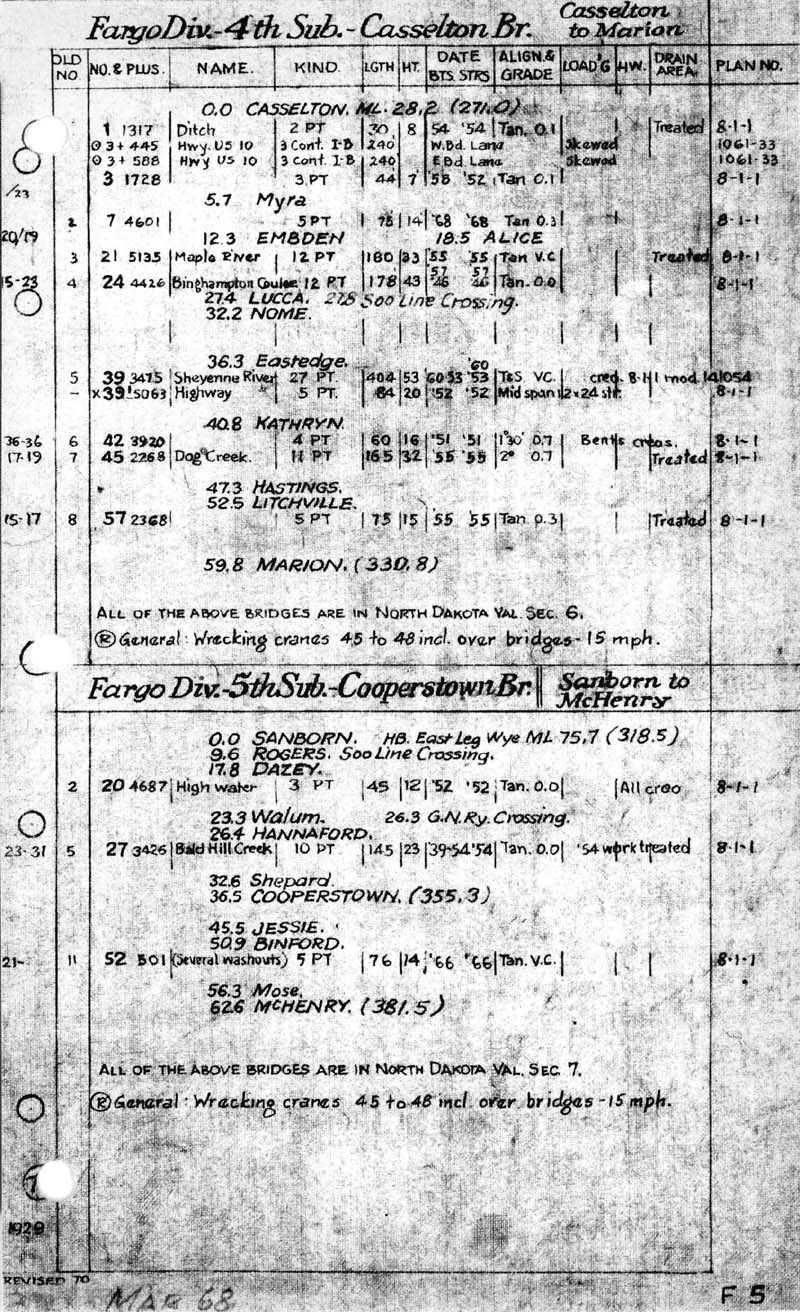 Fargo Div.-4th Sub.-Casselton Br. Casselton to Marion
OLD NO. NO. & PLUS. NAME. KIND. LGTH HT. DATE BTS. STRS ALIGN.& GRADE LOAD'G HW. DRAIN AREA. PLAN NO.
0.0 CASSELTON. ML. 28.2 (271.0)
1 1317 Ditch 2 PT 30 8 54 '54 Tan. 0.1 Treated 8-1-1
3+445 Hwy. US 10 3 Cont. I-B 240 W.Bd. Land Skewed 1061-33
3+588 Hwy US 10 3 cont. I-B 240 E.Bd. Land Skewed 1061-33
3 1728 3 PT 44 7 '58 '52 Tan 0.1 8-1-1
/23
5.7 Myra
2 7 4601 5 PT 75 14 '68 '68 Tan 0.3 8-1-1
20/19
12.3 EMBDEN 18.5 ALICE
3 21 5135 Maple River 12 PT 180 33 '55 '55 Tan V.C Treated 8-1-1
57 57
15-23 4 24 4426 Binghampton Coulee 12 PT 178 43 '46 46 Tan. 0.0 8-1-1
27.4 LUCCA. 27.8 Soo Line Crossing.
32.2 NOME.
36.3 Eastedge. '60
5 39 3475 Sheyenne River 27 PT. 404 53 '60 53 '53 T&S VC. creo. 8-1-1 mod. 141054
- x39 5063 Highway 5 PT. 84 20 '52 '52 Mid span 12x24 str. 8-1-1
40.8 KATHRYN.
36-36 6 42 3920 4 PT 60 16 '51 '51 1°30' 0.7 Bents creos. 8-1-1
17-19 7 45 2268 Dog Creek. 11 PT 165 32 '55 '55 2° 0.7 Treated 8-1-1
47.3 HASTINGS.
52.5 LITCHVILLE.
15-17 8 57 2368 5 PT 75 15 55 55 Tan 0.3 Treated 8-1-1
59.8 MARION. (330.8)
ALL OF THE ABOVE BRIDGES ARE IN NORTH DAKOTA VAL. SEC. 6.
Ⓡ General: Wrecking cranes 45 to 48 incl. over bridges - 15 mph.
Fargo Div.-5th Sub.-Cooperstown Br. Sanborn to McHenry
0.0 SANBORN. HB. East Leg Wye ML 75.7 (318.5)
9.6 ROGERS. Soo Line Crossing.
17.8 DAZEY.
2 20 4687 High water 3 PT 45 12 '52 '52 Tan. 0.0 All creo 8-1-1
23.3 Walum. 26.3 G.N.Ry. Crossing.
26.4 HANNAFORD.
23-31 5 27 3426 Bald Hill Creek 10 PT 145 23 '39-54 '54 Tan. 0.0 '54 work treated 8-1-1
32.6 Shepard.
36.5 COOPERSTOWN. (355.3)
45.5 JESSIE.
50.9 BINFORD.
21- 11 52 501 (Several washouts) 5 PT 76 14 '66 '66 Tan. V.C. 8-1-1
56.3 Mose.
62.6 MCHENRY. (381.5)
ALL OF THE ABOVE BRIDGES ARE IN NORTH DAKOTA VAL. SEC. 7.
Ⓡ General: Wrecking cranes 45 to 48 incl. over bridges - 15 mph.
1929
REVISED TO
MAR 68
F 5